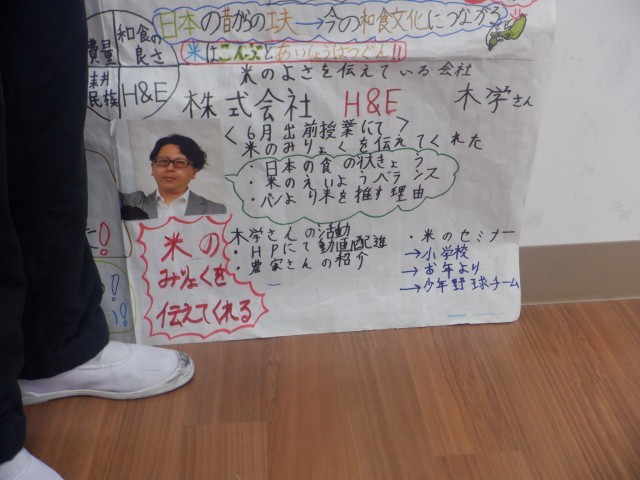 日本の昔からの工夫→今の和食文化につながる
米はこんぶとあいしょうばつぐん!!
費量
和食の
良さ
民族
H&E
米のよさを伝えている会社
株式会社 H&E 木学さん
<6月出前授業にて>
米のみりょくを伝えてくれた
・日本の食の状きょう
・米のえいようバランス
・パンより米を推す理由
米の
みりょくを
伝えてくれる
木学さんの活動
・HPにて動画配進
・農家さんの紹介
・米のセミナー
→小学校
→お年より
→少年野球チーム